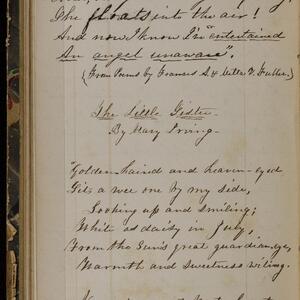 She floats into the air!
And now I know I'm "entertained
An angel unaware".
(From Poems by Frances A & Metta V. Fuller.)
The Little Sister
By Mary Irving-
"Golden haired and heaven-eyed
Sits a wee one by my side,
Looking up and smiling;
White as daisy in July,
From the sun's great guardian, eye,
Warmth and sweetness wiling.